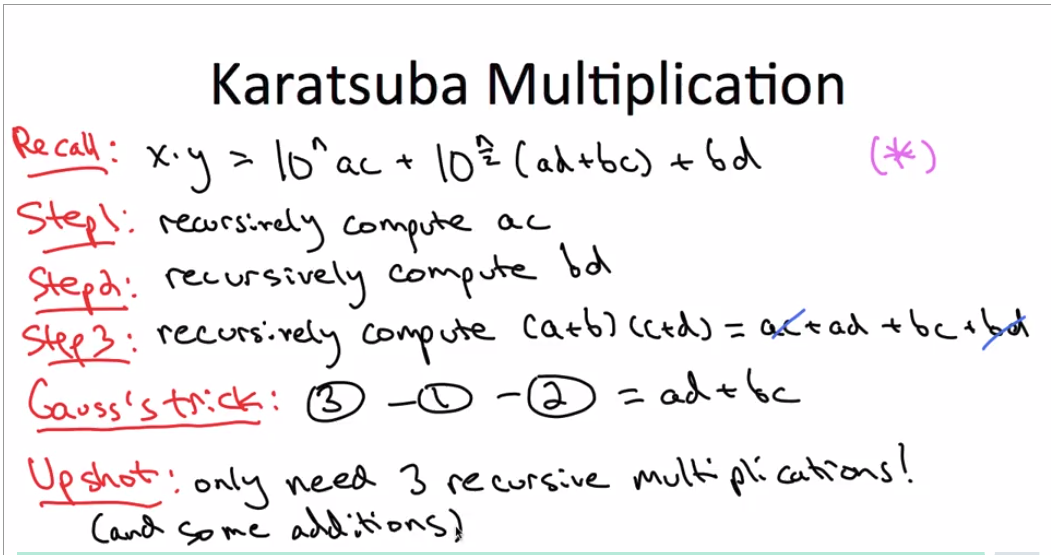 Karatsuba Multiplication
Recall: x·y = 10^n ac + 10^(n/2) (ad+bc) + bd (*)
Step1: recursively compute ac
Step2: recursively compute bd
Step3: recursively compute (a+b)(c+d) = ac+ad+bc+bd
Gauss's trick: ③ -① -② = ad+bc
Upshot: only need 3 recursive multiplications!
(and some additions)